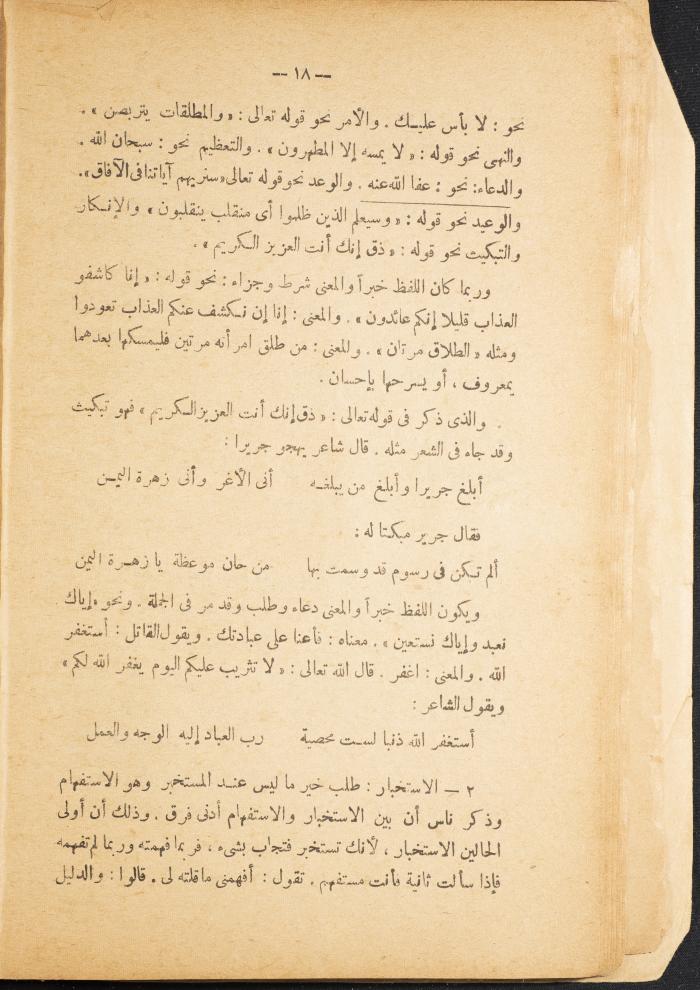 — ١٨ —
نحو : لا بأس عليـك . والأمر نحو قوله تعالى : « والمطلقات يتربصن » .
والنهى نحو قوله : « لا يمسه إلا المطهرون » . والتعظيم نحو : سبحان الله .
والدعاء: نحو : عفا الله عنه . والوعد نحو قوله تعالى «سنريهم آياتنا فى الآفاق».
والوعيد نحو قوله : « وسيعلم الذين ظلموا أى منقلب ينقلبون » والإنـكار
والتبكيت نحو قوله : « ذق إنك أنت العزيز الـكريم » .
وربما كان اللفظ خبراً والمعنى شرط وجزاء : نحو قوله : « إنا كاشفو
العذاب قليلا إنكم عائدون » . والمعنى : إنا إن نـكشف عنكم العذاب تعودوا
ومثله « الطلاق مرتان » . والمعنى : من طلق امرأته مرتين فليمسكها بعدهما
بمعروف ، أو يسرحها بإحسان .
. والذى ذكر فى قوله تعالى : « ذق إنك أنت العزيز الـكريم » فهو تبكيت
وقد جاء فى الشعر مثله . قال شاعر يهجو جريرا :
أبلغ جريرا وأبلغ من يبلغـه أنى الأغر وأنى زهرة اليمـن
فقال جرير مبكتا له :
ألم تـكن فى رسوم قد وسمت بها من حان موعظة يا زهـرة اليمن
ويكون اللفظ خبراً والمعنى دعاء وطلب وقد مر فى الجملة . ونحو «إياك
نعبد وإياك نستعين » . معناه : فأعنا على عبادتك . ويقول القائل : أستغفر
الله . والمعنى : اغفر . قال الله تعالى : « لا تثريب عليكم اليوم يغفر الله لكم »
ويقول الشاعر :
أستغفر الله ذنبا لسـت محصية رب العباد إليه الوجه والعمل
٢ — الاستخبار : طلب خير ما ليس عنـد المستخبر وهو الاستفهام
وذكر ناس أن بين الاستخبار والاستفهام أدنى فرق . وذلك أن أولى
الحالين الاستخبار ، لأنك تستخبر فتجاب بشىء ، فربما فهمته وربما لم تفهمه
فإذا سألت ثانية فأنت مستفهم . تقول : أفهمنى ما قلته لى . قالوا : والدليل